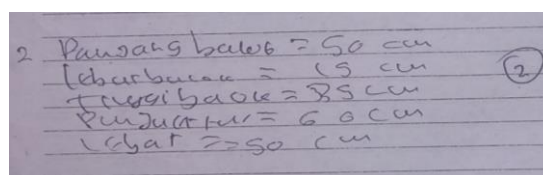 2 Panjang balok = 50 cm
Lebar balok = 15 cm
tinggi balok = 35 cm
= 60 cm
Lebar == 50 cm
2